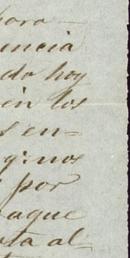 pora
uncia
do hoy
in los
s en-
q: nos
por
aque
ta al-